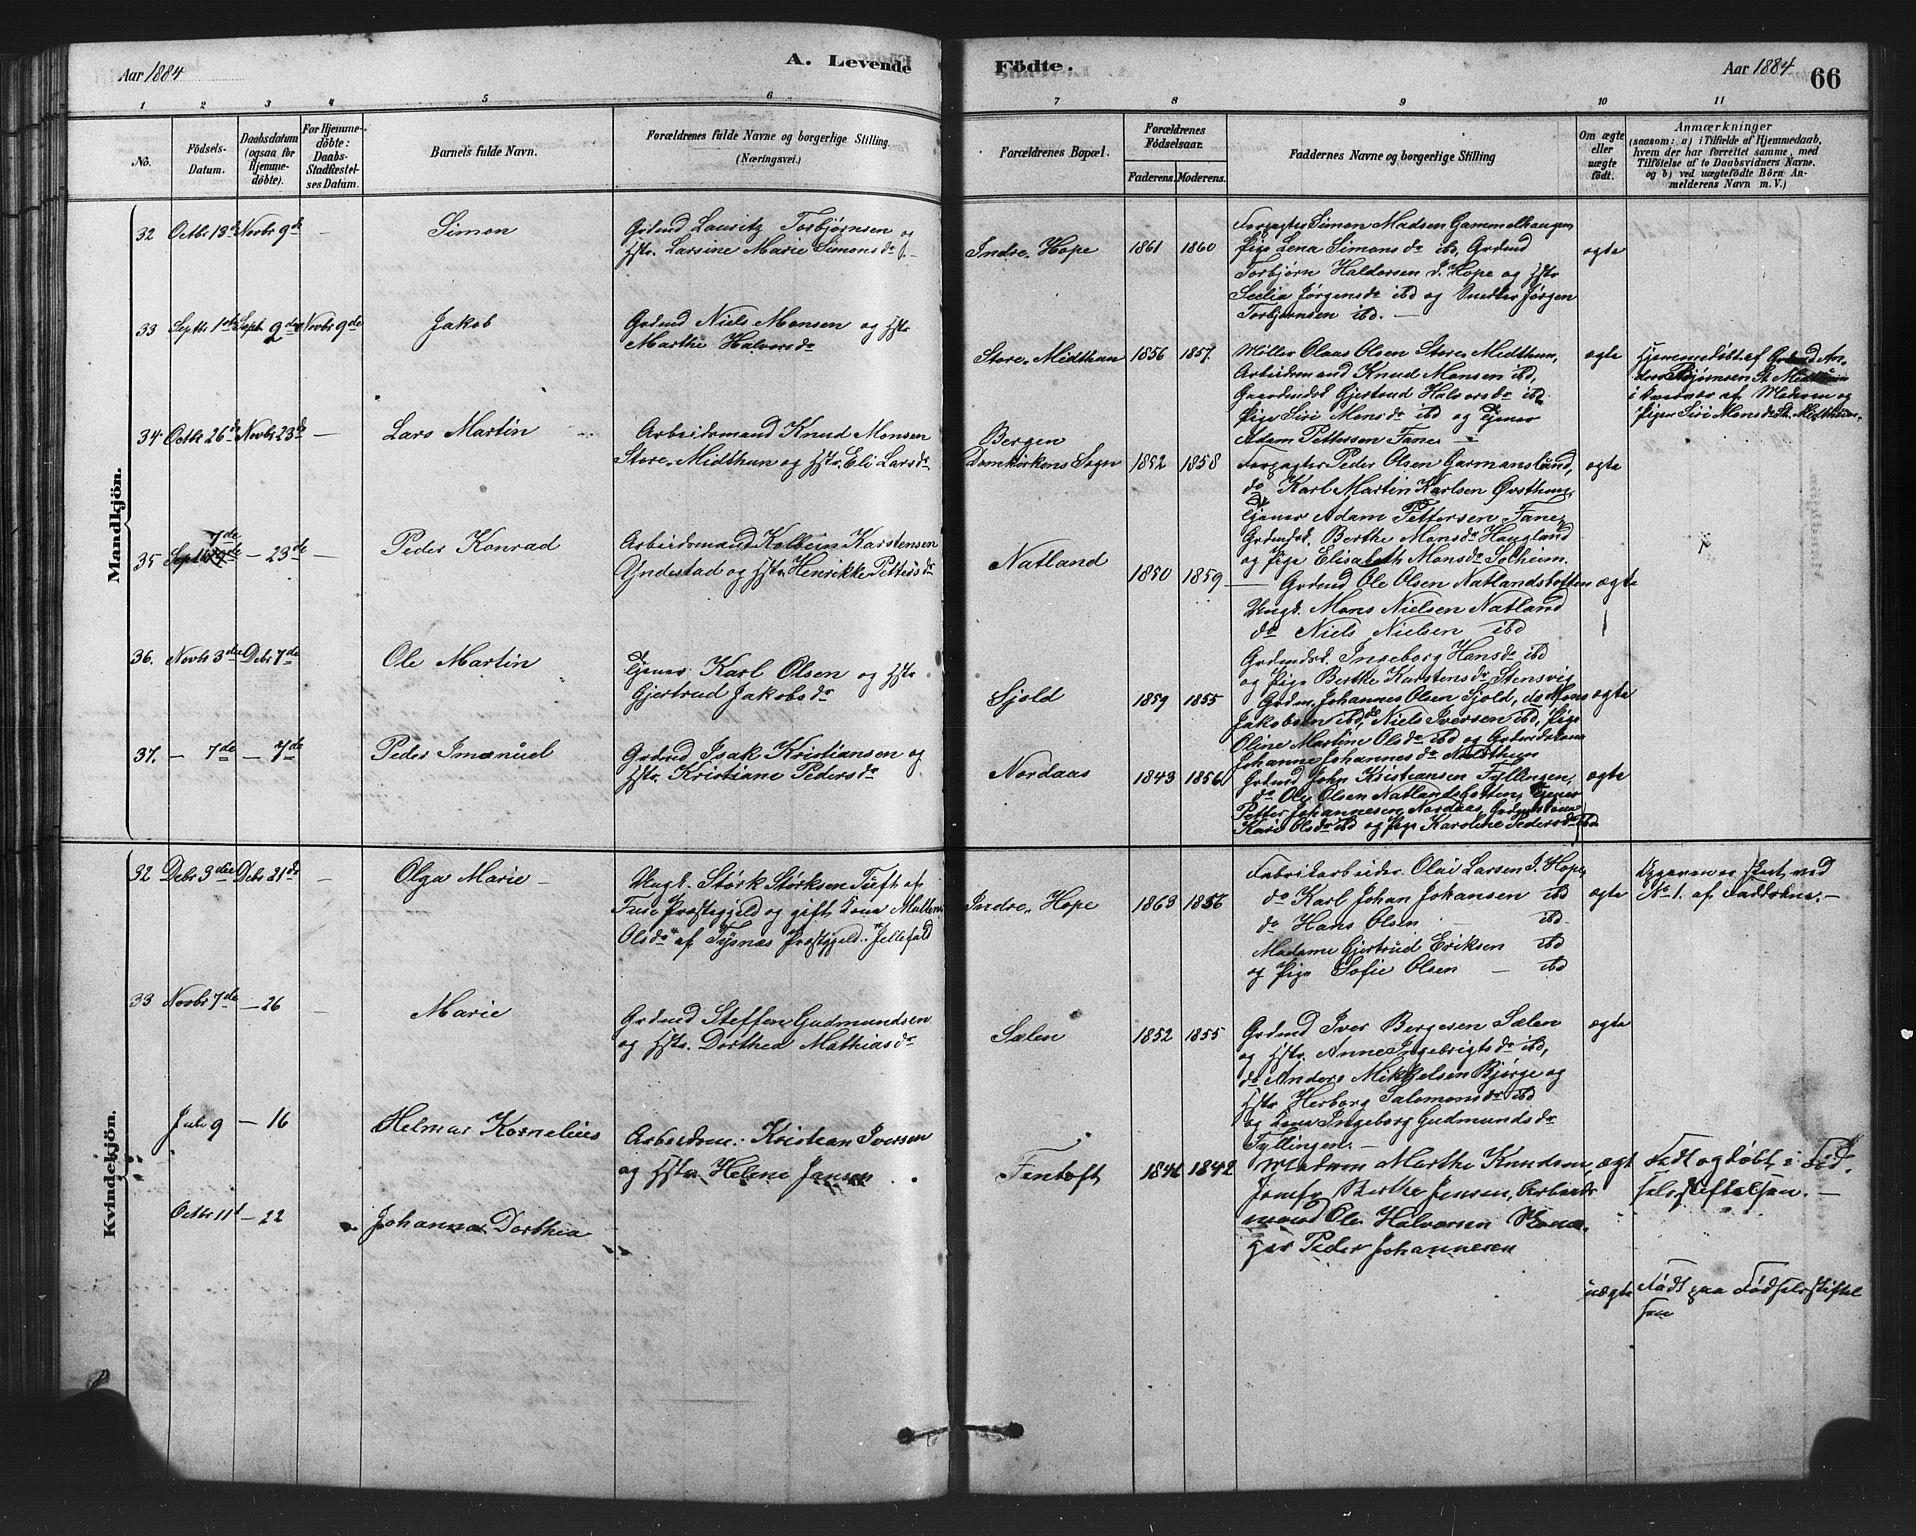 Aar 1884
A. Levende
Födte.
Aar 1884
66
1 2 3 4 5 6 7 8 9 10 11
No.
Födsels-
Datum.
Daabsdatum
(ogsaa for
Hjemme-
döbte).
For Hjemme-
döbte:
Daabs-
Stadfæstel-
ses Datum.
Barnets fulde Navn.
Forældrenes fulde Navne og borgerlige Stilling.
(Næringsvei.)
Forældrenes Bopæl.
Forældrenes
Födselsaar.
Faderens. Moderens.
Faddernes Navne og borgerlige Stilling
Om ægte
eller
uægte
födt.
Anmærkninger
(saasom: a) i Tilfælde af Hjemmedaab,
hvem der har forrettet samme, med
Tilföielse af to Daabsvidners Navne.
og b) ved uægtefödte Börn An-
melderens Navn m. V.)
Mandkjön.
32 Octbr 13de Novbr 9de — Simon
Grdmd Lauritz Torbjørnsen og
Hstr. Larsine Marie Simonsdr
Indre Hope 1861 1860
Forpagter Simon Madsen Gammelhaugen
Pige Lena Simonsdr ibd, Grdmd
Torbjørn Haldorsen I. Hope og Hstr
Jørgensdr ibd og Snedker Jørgen
Torbjørnsen ibd. —
ægte
33 Septbr 1ste Septbr 2den Novbr 9de Jakob
Grdmd Niels Monsen og Hstr
Marthe Halvorsdr
Store Midthun 1856 1857
Møller Olaus Olsen Store Midthun,
Arbeidsmand Knud Monsen ibd,
Gjertrud Halvorsdr ibd
Pige Siri Monsdr ibd og Tjener
Adam Pettersen Fane —
ægte
Hjemmedøbt af Grdmd An-
ders Bjørnsen St. Midthun
i Nærvær af Moderen og
Pigen Siri Monsdr St. Midthun
34 Octbr 26de Novbr 23de — Lars Martin
Arbeidsmand Knud Monsen
Store Midthun og Hstr. Eli Larsdr
Bergen
Domkirkens Sogn 1852 1858
Forpagter Peder Olsen Garmanslund,
do Karl Martin Karlsen
Tjener Adam Pettersen Fane,
Berthe Monsdr Haugland
og Pige Elisabeth Monsdr Solheim.
ægte
35 Septbr 7de — 23de — Peder Konrad
Arbeidsmand Kolbein Karstensen
Yndestad og Hstr. Henrikke Pettersdr
Natland 1850 1859
— Grdmd Ole Olsen Natlandsboften
Ungk. Mons Nielsen Natland
do Niels Nielsen ibd
Ingeborg Hansdr ibd
og Pige Berthe Karstensdr Stensvig
ægte
36. Novbr 3die Debr 7de Ole Martin
Tjener Karl Olsen og Hstr
Gjertrud Jakobsdr
Sjold 1859 1855
Grdm. Johannes Olsen Sjold, do Mons
Jakobsen ibd, do Niels Iversen ibd, Pige
Oline Martine Olsdr ibd og
Johanne Johannesdr Midthun
ægte
37. — 7de — 7de Peder Imanuel
Grdmd Isak Kristiansen og
Hstr. Kristiane Pedersdr
Nordaas 1843 1856
Grdmd John Kristiansen Tyllingen,
do Ole Olsen Natlandsboften, Tjener
Petter Johannesen Nordaas,
Kari Olsdr ibd og Pige Karoline Pedersdr ibd
ægte
Kvindekjön.
32 Debr 3die Debr 21de — Olga Marie —
Ungk. Størk Størksen Tuft af
Fuse Præstegjeld og gift Kona
Olsdr af Tysnæs Præstegjeld.
Indre Hope 1863 1856
Fabrikarbeider Olai Larsen I. Hope,
do Karl Johan Johansen ibd
do Hans Olsen — ibd
Madame Gjertrud Eriksen ibd
og Pige Sofie Olsen — ibd
ægte
Opgaven er skeet ved
No 1. af Fadderne. —
33 Novbr 7de — 26 — Marie
Grdmd Steffen Gudmundsen
og Hstr. Dorthea Mathiasdr
Sælen 1852 1855
Grdmd Iver Børgesen Sælen
og Hstr. Anne Ingebrigtsdr ibd,
do Anders Mikkelsen Bjørge og
Hstr Herborg Salomonsdr ibd
og Ingeborg Gudmundsdr
Tyllingen. —
ægte
Juli 9 — 16 Helmar Kornelius
Arbeidsm. Kristian Iversen
og Hstr. Helene Jansen
Fantoft 1842
Madam Marthe Knudsen,
Jomfr Berthe Jensen, Arbeids-
mand Ole Halvorsen
Peder Johannesen
ægt
Født og døbt i Fød-
selsstiftelsen. —
Octbr 11t — 22 Johanna Dorthea
uægte
Født paa Fødselsstiftel
sen